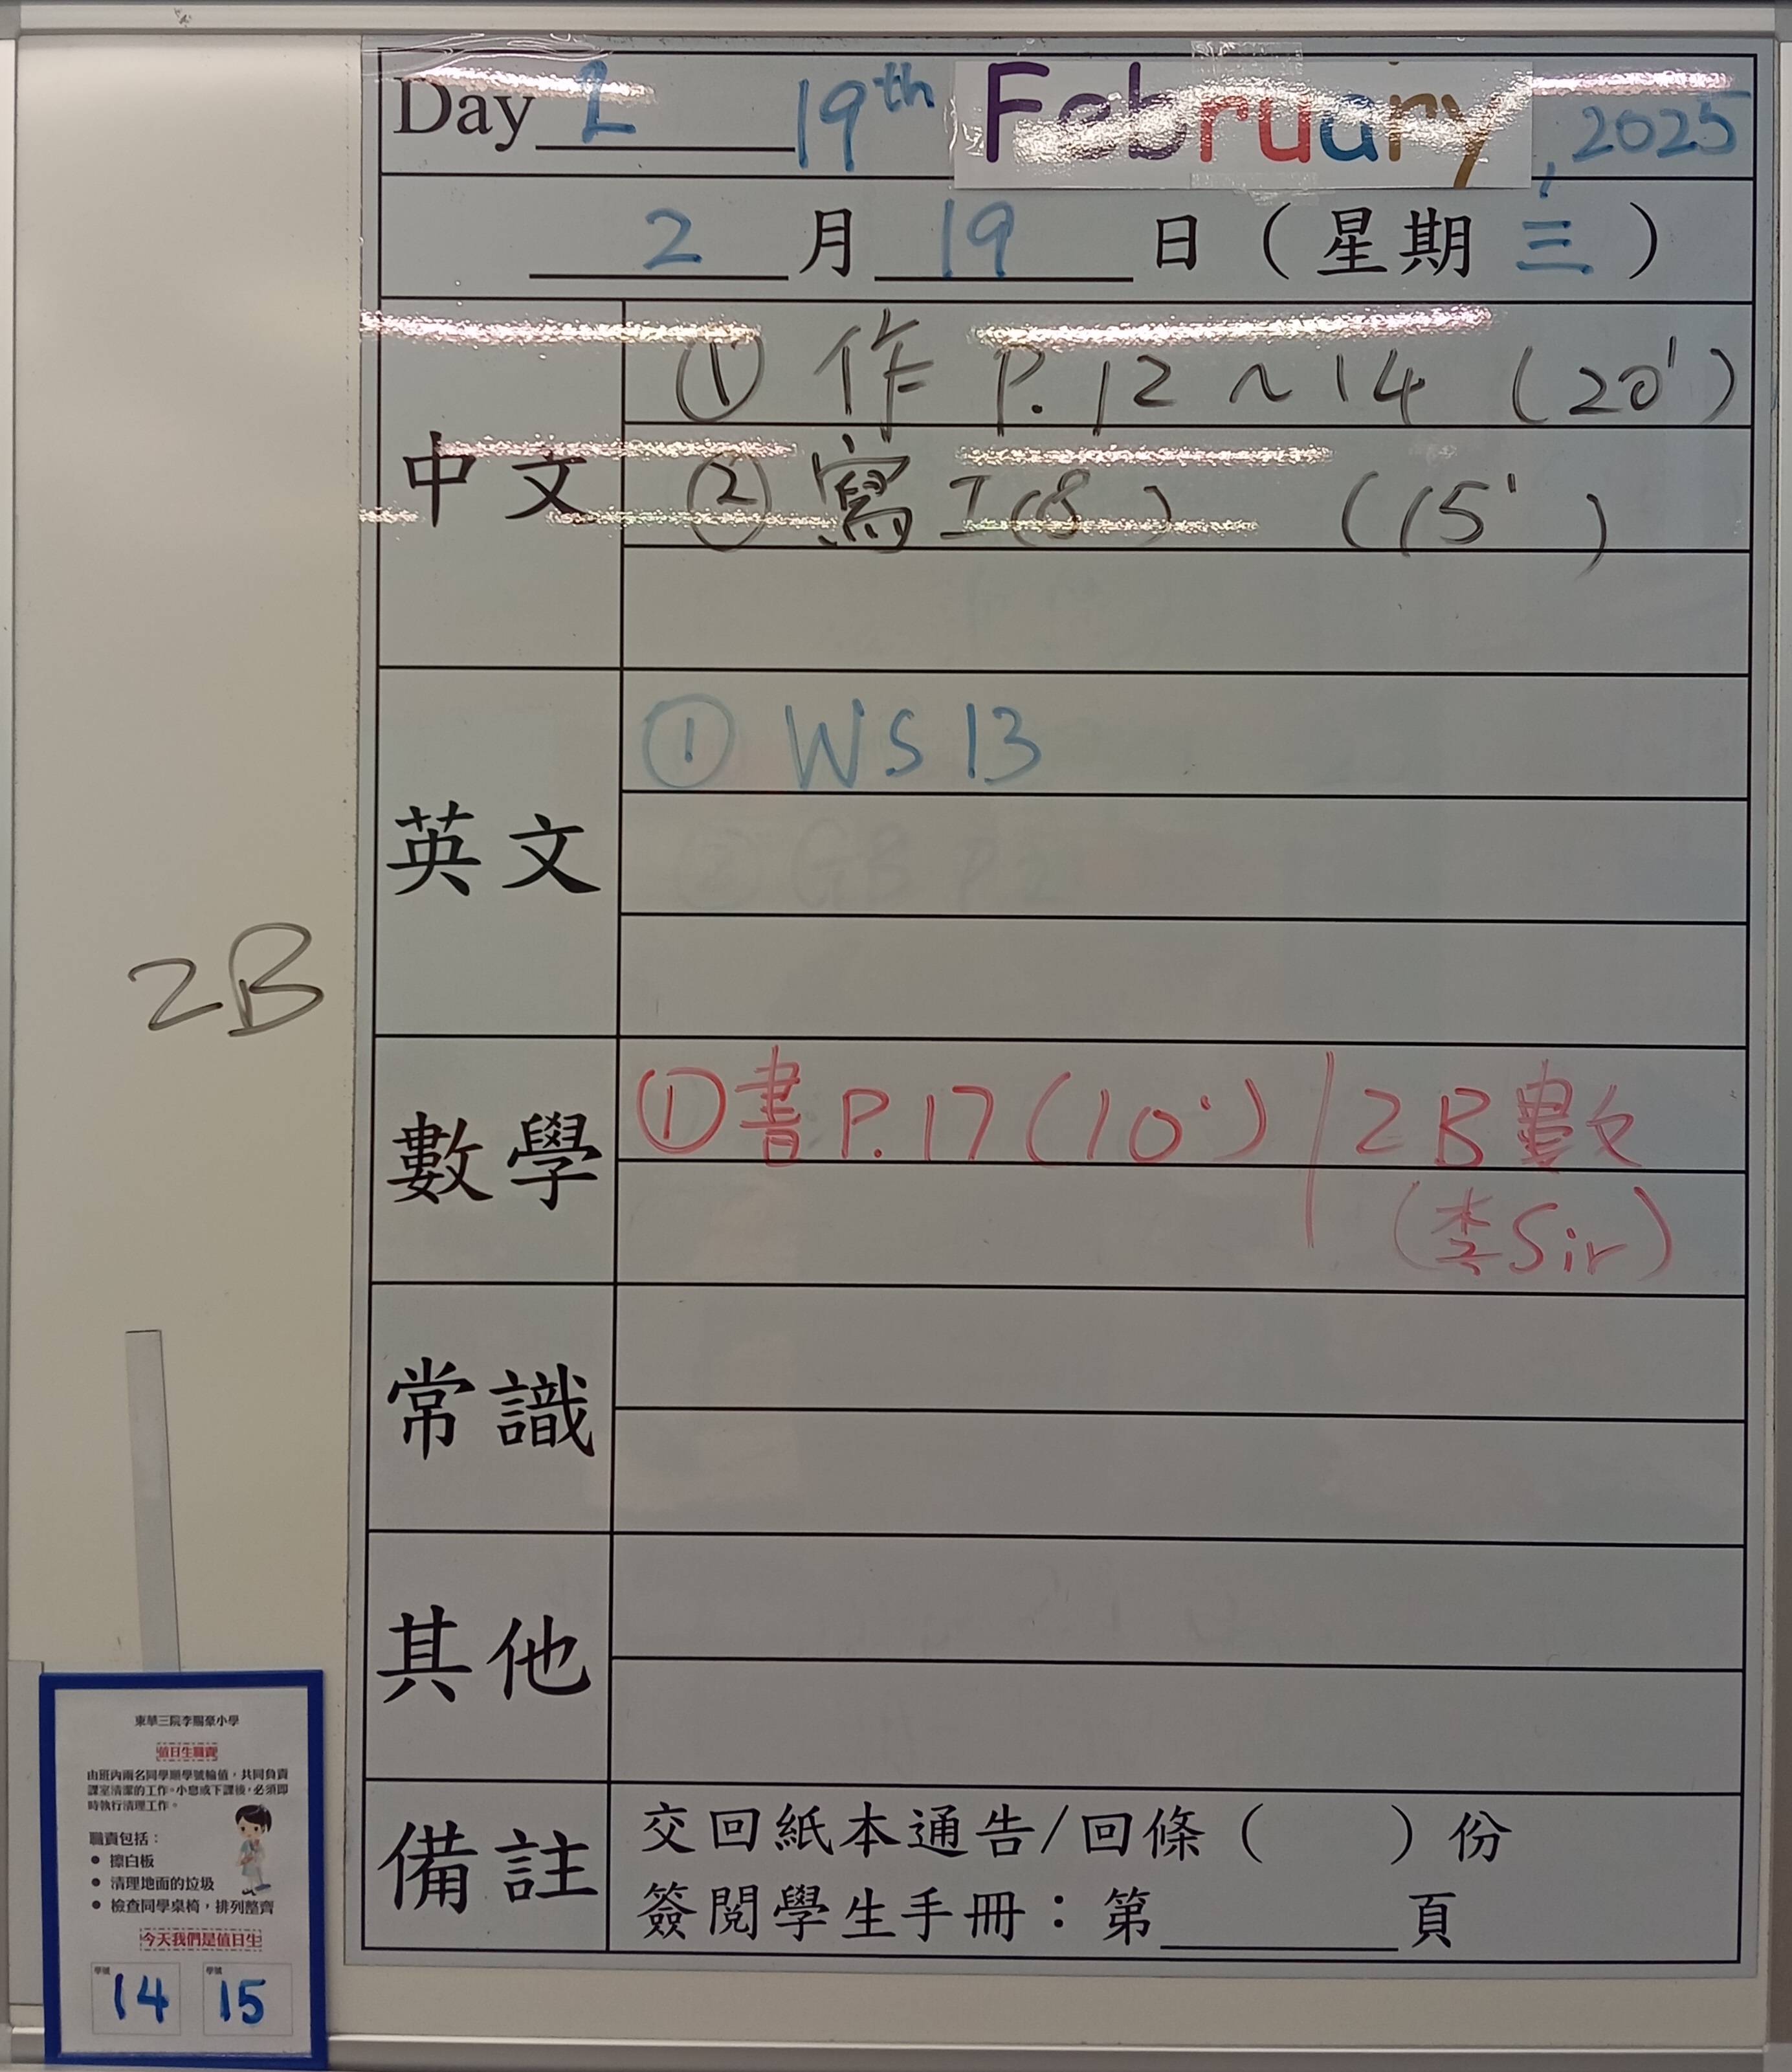 Day 19th February, 2025
2 月 19 日 ( 星期 三 )
中文
① 作 P. 12 ~ 14 (20')
② 寫 I(8) (15')
英文
① WS 13
2B
數學
① 書 P. 17 (10') 2B 數
(李Sir)
常識
其他
備註
交回紙本通告/回條 ( ) 份
簽閱學生手冊:第 頁
東華三院李賜豪小學
值日生職責
由班內兩名同學順學號輪值,共同負責
課室清潔的工作。小息或下課後,必須即
時執行清理工作。
職責包括:
• 擦白板
• 清理地面的垃圾
• 檢查同學桌椅,排列整齊
今天我們是值日生
學號 學號
14 15